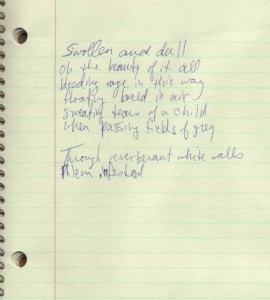 Swollen and dull
oh the beauty of it all
bleeding rage in this way
floating in air
sweating tears of a child
when passing fields of grey
Through reverberant white walls
infested